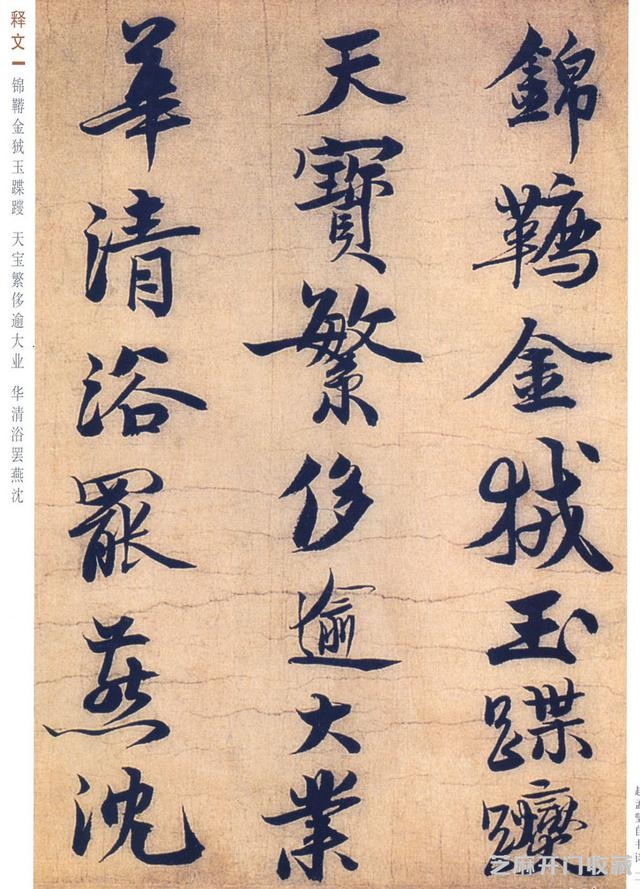 錦韉金狨玉蹀躞
天寶繁侈逾大業
華清浴罷燕沈
释文
锦鞯金狨玉蹀躞 天宝繁侈逾大业 华清浴罢燕沈
芝麻开门收藏